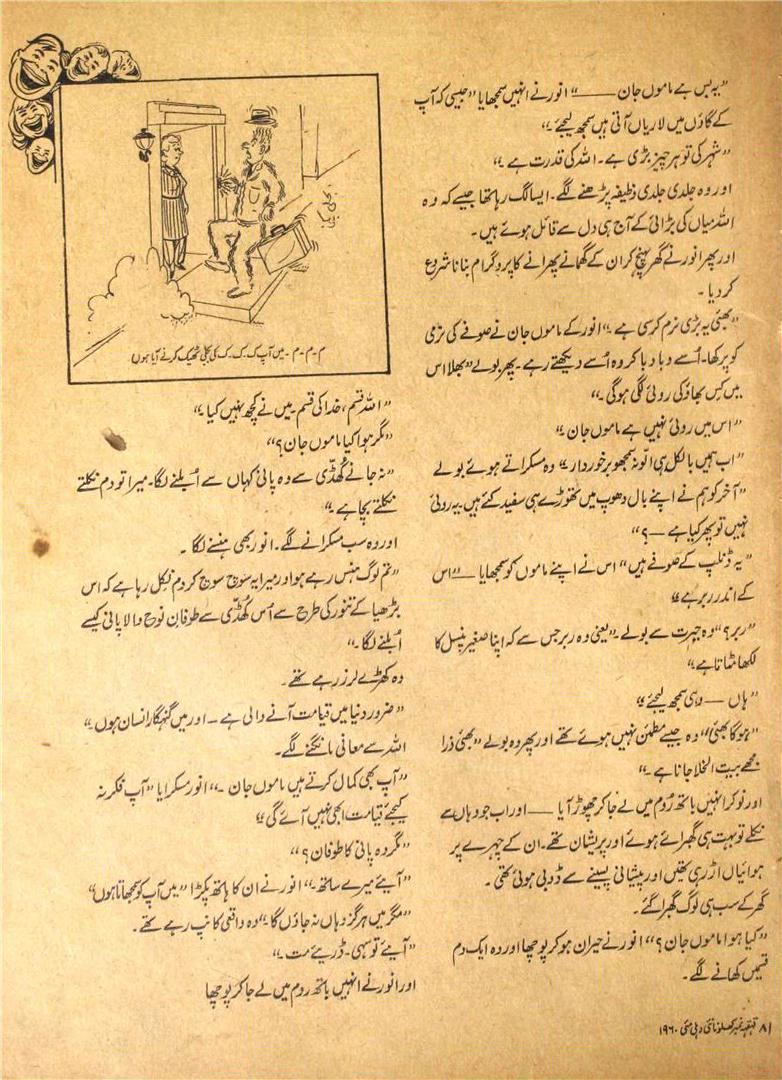 ”یہ بس ہے ماموں جان ——“ انور نے انہیں سمجھایا ”جیسی کہ آپ
کے گاؤں میں لاریاں آتی ہیں سمجھ لیجئے۔“
”شہر کی تو ہر چیز بڑی ہے۔ اللہ کی قدرت ہے۔“
اور وہ جلدی جلدی وظیفہ پڑھنے لگے۔ ایسا لگ رہا تھا جیسے کہ وہ
اللہ میاں کی بڑائی کے آج ہی دل سے قائل ہوئے ہیں۔
اور پھر انور نے گھر پہنچ کر ان کے گھمانے پھرانے کا پروگرام بنانا شروع
کر دیا۔
”بھئی یہ بڑی نرم کرسی ہے۔“ انور کے ماموں جان نے صوفے کی نرمی
کو پرکھا۔ اُسے دبا دبا کر وہ اُسے دیکھتے رہے۔ پھر بولے ”بھلا اس
میں کس بھاؤ کی روئی لگی ہوگی۔“
”اس میں روئی نہیں ہے ماموں جان۔“
”اب ہمیں بالکل ہی اُلّو نہ سمجھو برخوردار۔“ وہ مسکراتے ہوئے بولے
”آخر کو ہم نے اپنے بال دھوپ میں تھوڑے ہی سفید کئے ہیں۔ یہ روئی
نہیں تو پھر کیا ہے —؟“
”یہ ڈنلپ کے صوفے ہیں“ اس نے اپنے ماموں کو سمجھایا — ”اس
کے اندر ربر ہے“
”ربر؟“ وہ حیرت سے بولے۔ ”یعنی وہ ربر جس سے کہ اپنا صغیر پنسل کا
لکھا مٹاتا ہے۔“
”ہاں — وہی سمجھ لیجئے“
”ہوگا بھئی“ وہ جیسے مطمئن نہیں ہوئے تھے اور پھر وہ بولے ”بھئی ذرا
مجھے بیت الخلا جانا ہے۔“
اور نوکر انہیں باتھ رُوم میں لے جا کر چھوڑ آیا —— اور اب جو وہاں سے
نکلے تو بہت ہی گھبرائے ہوئے اور پریشان تھے۔ ان کے چہرے پر
ہوائیاں اڑ رہی تھیں اور پیشانی پسینے سے ڈوبی ہوئی تھی۔
گھر کے سب ہی لوگ گھبرا گئے۔
”کیا ہوا ماموں جان؟“ انور نے حیران ہو کر پوچھا اور وہ ایک دم
قسمیں کھانے لگے۔
م۔م۔م۔میں آپ ک۔ک۔ک کی بجلی ٹھیک کرنے آیا ہوں
”اللہ قسم، خدا کی قسم۔ میں نے کچھ نہیں کیا۔“
”مگر ہوا کیا ماموں جان؟“
”نہ جانے کُھڈّی سے وہ پانی کہاں سے اُبلنے لگا۔ میرا تو دم نکلتے
نکلتے بچا ہے۔“
اور وہ سب مسکرانے لگے۔ انور بھی ہنسنے لگا۔
”تم لوگ ہنس رہے ہو اور میرا یہ سوچ سوچ کر دم نکل رہا ہے کہ اس
بڑھیا کے تنور کی طرح سے اُس کُھڈّی سے طوفانِ نوح والا پانی کیسے
اُبلنے لگا۔“
وہ کھڑے لرز رہے تھے۔
”ضرور دنیا میں قیامت آنے والی ہے۔ اور میں گنہگار انسان ہوں۔“
اللہ سے معافی مانگنے لگے۔
”آپ بھی کمال کرتے ہیں ماموں جان۔“ انور مسکرایا ”آپ فکر نہ
کیجئے قیامت ابھی نہیں آئے گی“
”مگر وہ پانی کا طوفان؟“
”آیئے میرے ساتھ۔“ انور نے ان کا ہاتھ پکڑا ”میں آپ کو سمجھاتا ہوں“
”مگر میں ہرگز وہاں نہ جاؤں گا“ وہ واقعی کانپ رہے تھے۔
”آیئے تو سہی۔ ڈریئے مت۔“
اور انور نے انہیں باتھ روم میں لے جا کر پوچھا
۸۱ قہقہہ نمبر کھلونا نئی دہلی مئی ۱۹۶۰